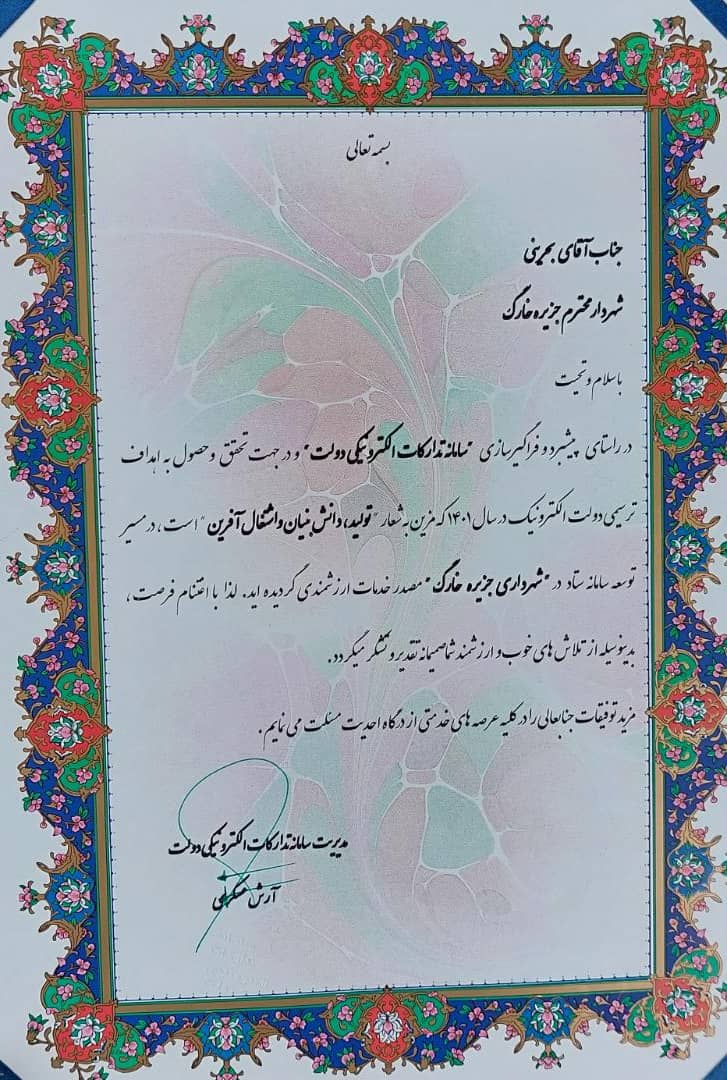 بسمه تعالی
جناب آقای بحرینی
شهردار محترم جزیره خارگ
با سلام و تحیت
در راستای پیشبرد و فراگیرسازی "سامانه تدارکات الکترونیکی دولت" و در جهت تحقق و حصول به اهداف
ترسیمی دولت الکترونیک در سال ۱۴۰۱ که مزین به شعار "تولید، دانش بنیان و اشتغال آفرین" است، در مسیر
توسعه سامانه ستاد در "شهرداری جزیره خارگ" مصدر خدمات ارزشمندی گردیده اید. لذا با اغتنام فرصت،
بدینوسیله از تلاش های خوب و ارزشمند شما صمیمانه تقدیر و تشکر میگردد.
مزید توفیقات جنابعالی را در کلیه عرصه های خدمتی از درگاه احدیت مسئلت می نمایم.
مدیریت سامانه تدارکات الکترونیکی دولت
آرش